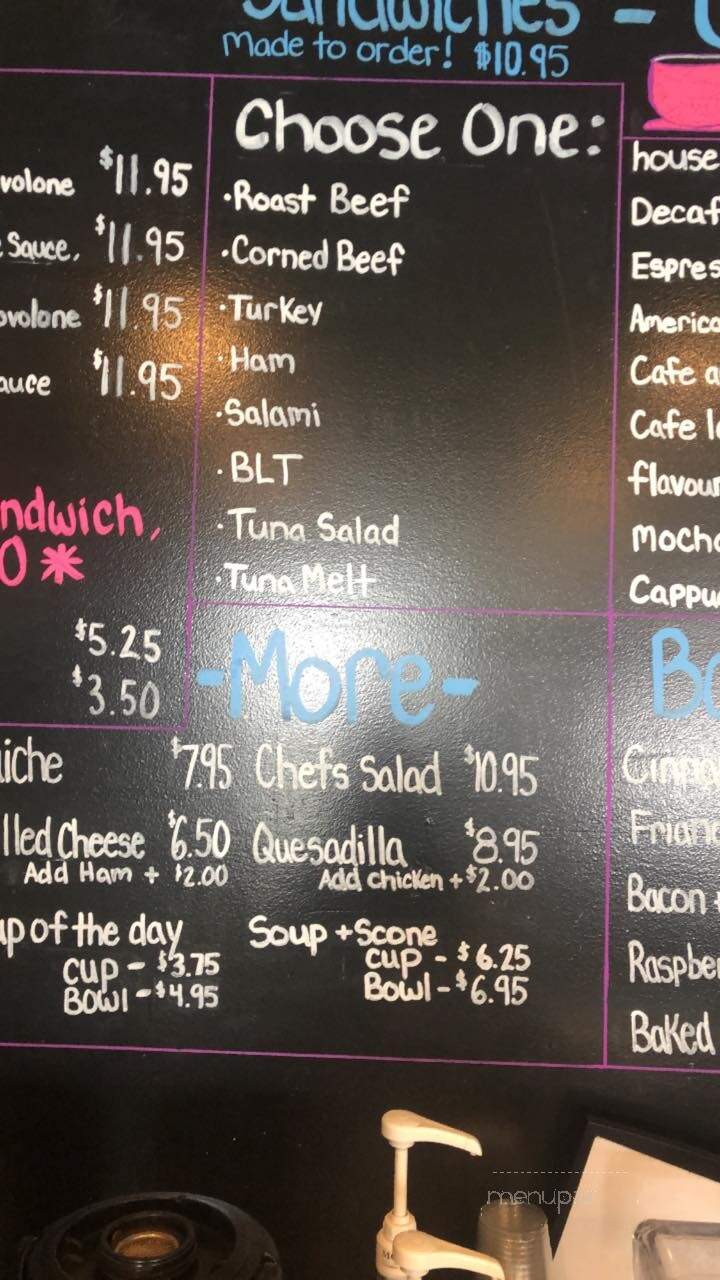 Sandwiches -
made to order! $10.95
volone $11.95
Sauce, $11.95
ovolone $11.95
auce $11.95
ndwich,
0 *
$5.25
$3.50
Choose One:
·Roast Beef
·Corned Beef
·Turkey
·Ham
·Salami
·BLT
·Tuna Salad
·Tuna Melt
-More-
iche $7.95
lled Cheese $6.50
Add Ham + $2.00
up of the day
cup - $3.75
Bowl - $4.95
Chefs Salad $10.95
Quesadilla $8.95
Add chicken + $2.00
Soup + Scone
cup - $6.25
Bowl - $6.95
house
Decaf
Espres
America
Cafe a
Cafe l
flavour
Mocha
Cappu
Ba
Cinna
Frian
Bacon +
Raspber
Baked